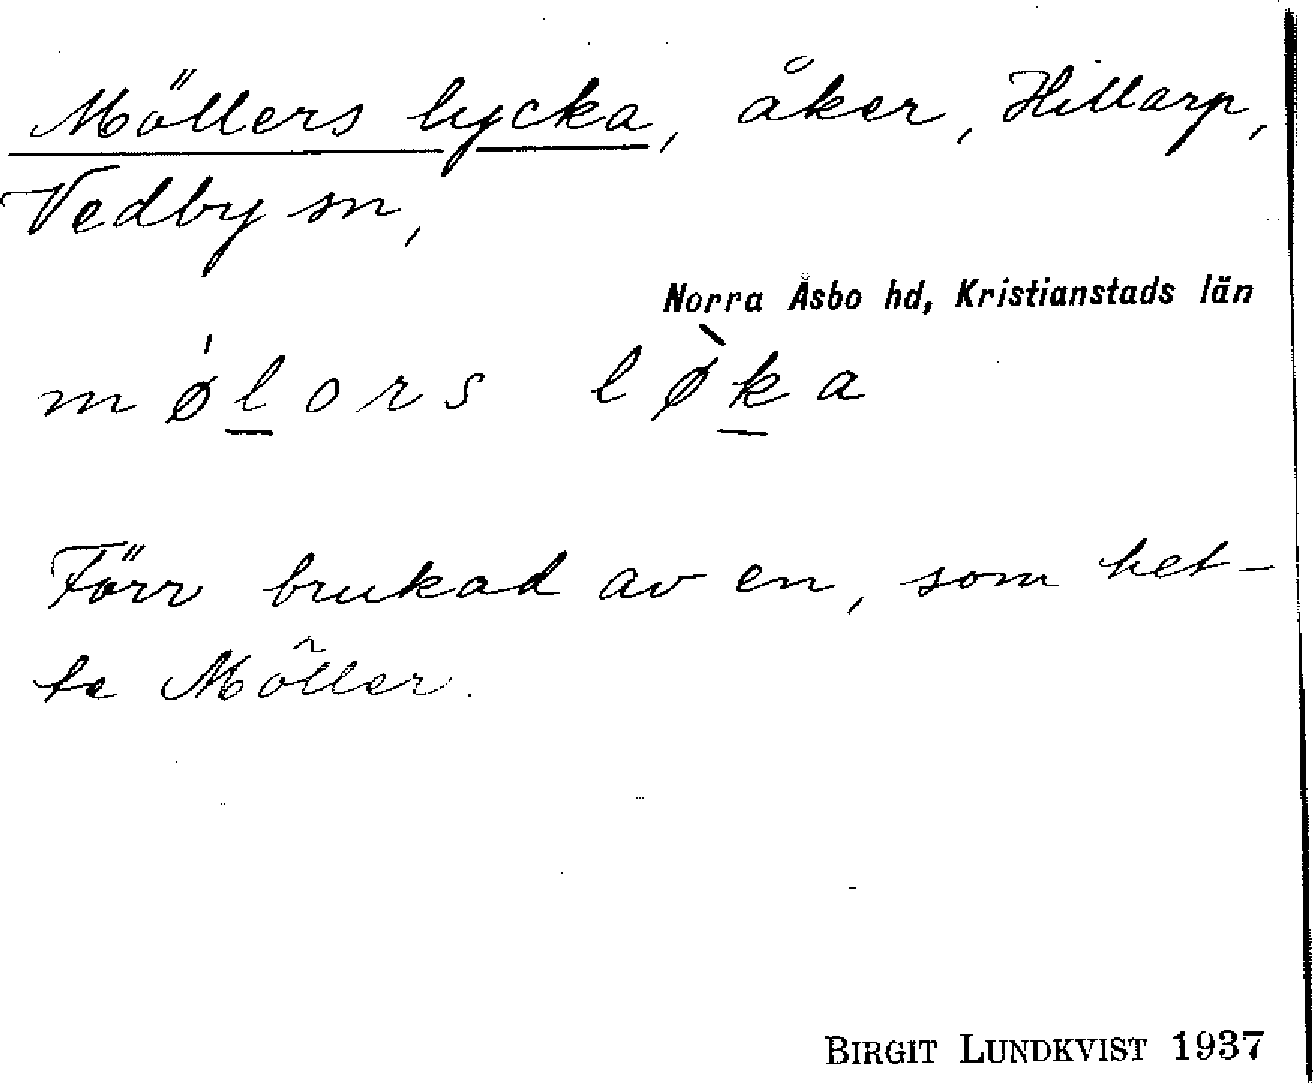 Möllers lycka, åker, Hillarp,
Vedby sn,
Norra Åsbo hd, Kristianstads län
mǿl̲ors lø̀k̲a
Förr brukad av en, som het-
te Möller.
BIRGIT LUNDKVIST 1937